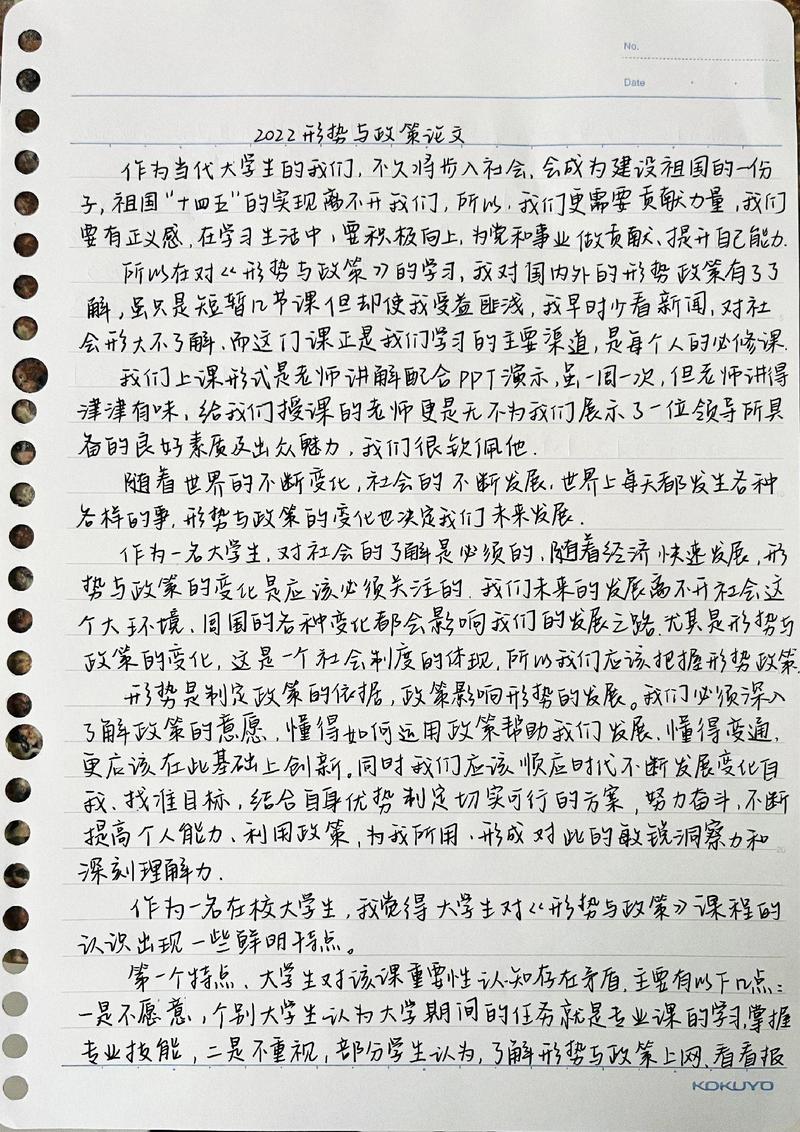 No.
Date
2022形势与政策论文
作为当代大学生的我们，不久将步入社会，会成为建设祖国的一份
子，祖国“十四五”的实现离不开我们，所以，我们更需要贡献力量，我们
要有正义感，在学习生活中，要积极向上，为党和事业做贡献、提升自己能力.
所以在对《形势与政策》的学习，我对国内外的形势政策有了了
解，虽只是短暂几节课但却使我受益匪浅，我平时少看新闻，对社
会形大不了解、而这门课正是我们学习的主要渠道，是每个人的必修课.
我们上课形式是老师讲解配合PPT演示，虽一周一次，但老师讲得
津津有味，给我们授课的老师更是无不为我们展示了一位领导所具
备的良好素质及出众魅力，我们很钦佩他.
随着世界的不断变化，社会的不断发展，世界上每天都发生各种
各样的事，形势与政策的变化也决定我们未来发展.
作为一名大学生，对社会的了解是必须的、随着经济快速发展，形
势与政策的变化是应该必须关注的.我们未来的发展离不开社会这
个大环境、周围的各种变化都会影响我们的发展之路.尤其是形势与
政策的变化，这是一个社会制度的体现，所以我们应该把握形势政策.
形势是制定政策的依据，政策影响形势的发展。我们必须深入
了解政策的意愿，懂得如何运用政策帮助我们发展、懂得变通，
更应该在此基础上创新。同时我们应该顺应时代不断发展变化自
我、找准目标，结合自身优势制定切实可行的方案，努力奋斗，不断
提高个人能力、利用政策，为我所用.形成对此的敏锐洞察力和
深刻理解力.
作为一名在校大学生，我觉得大学生对《形势与政策》课程的
认识出现一些鲜明特点。
第一个特点、大学生对该课重要性认知存在矛盾，主要有以下几点：
一是不愿意，个别大学生认为大学期间的任务就是专业课的学习，掌握
专业技能，二是不重视，部分学生认为，了解形势与政策上网、看看报
KOKUYO